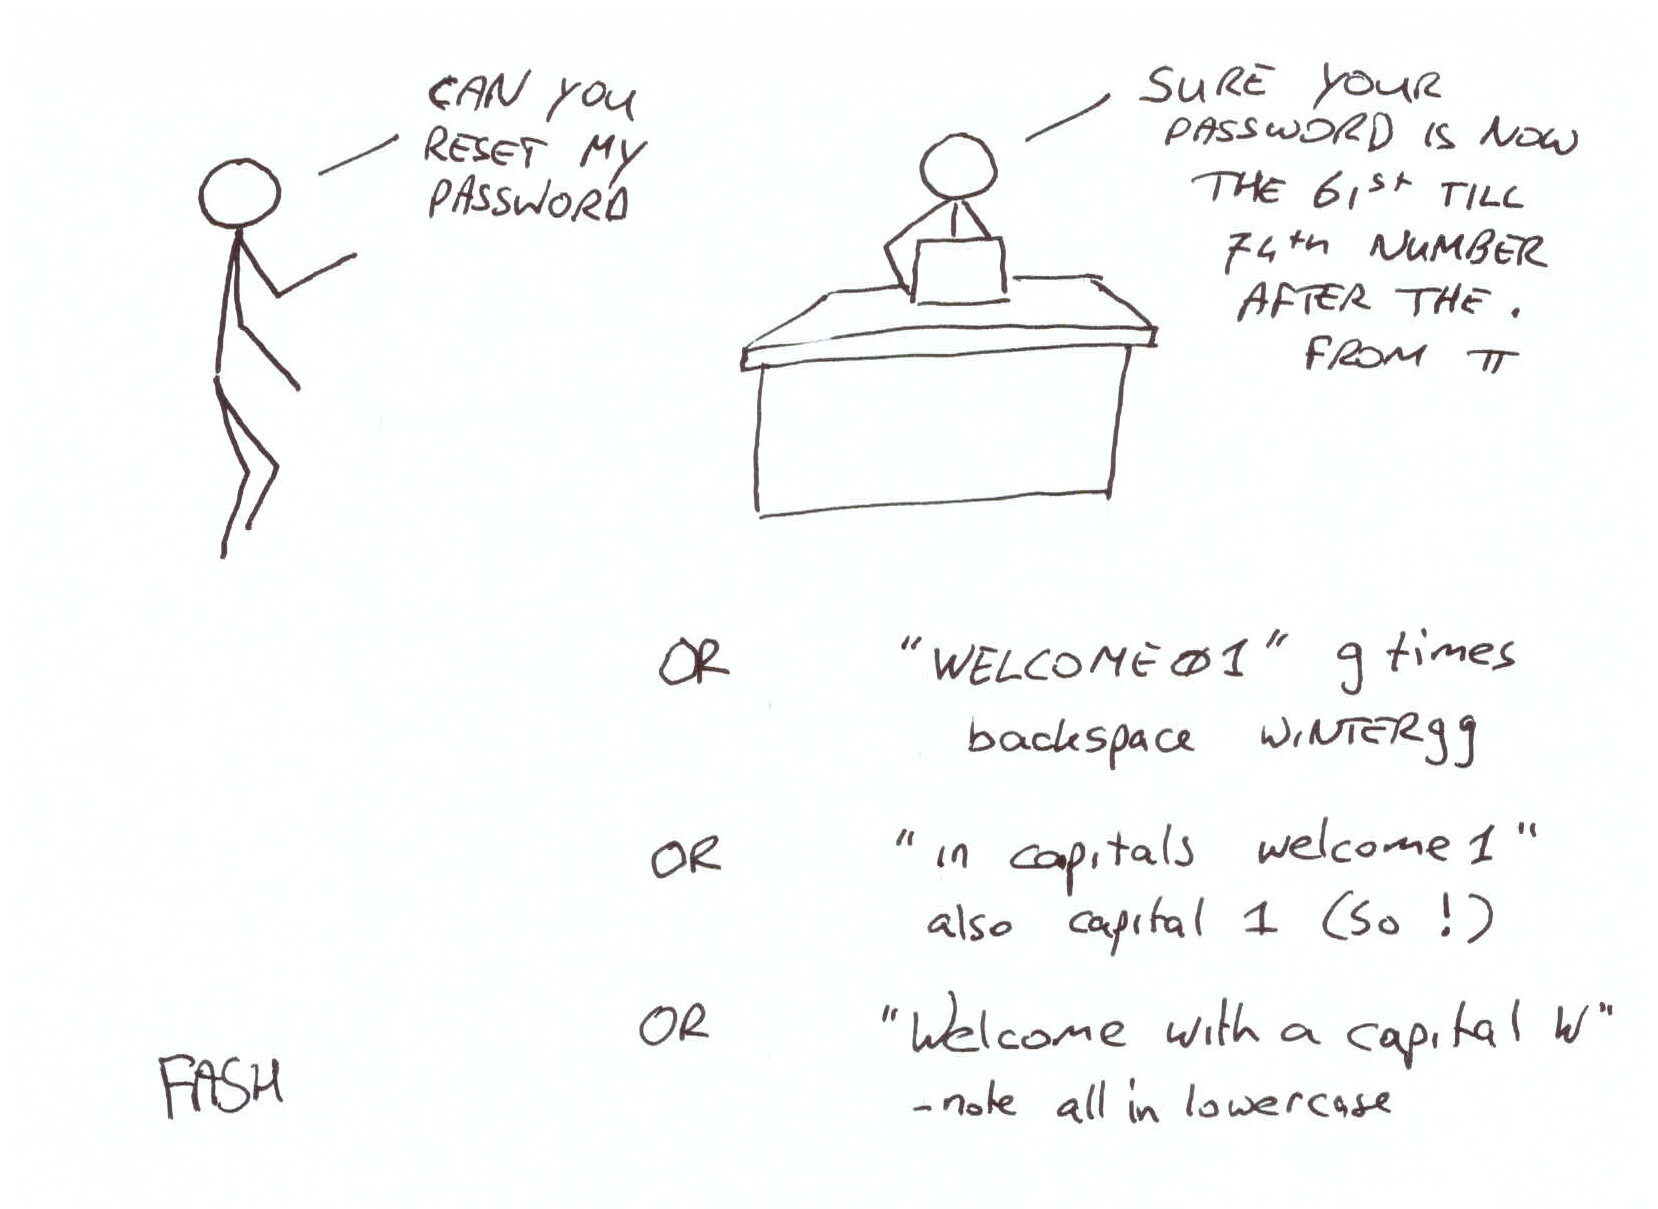 CAN YOU
RESET MY
PASSWORD
SURE YOUR
PASSWORD IS NOW
THE 61st TILL
74th NUMBER
AFTER THE .
FROM π
OR "WELCOMEØ1" 9 times
backspace WINTER99
OR "in capitals welcome1"
also capital 1 (so !)
OR "Welcome with a capital W"
- note all in lowercase
FASH